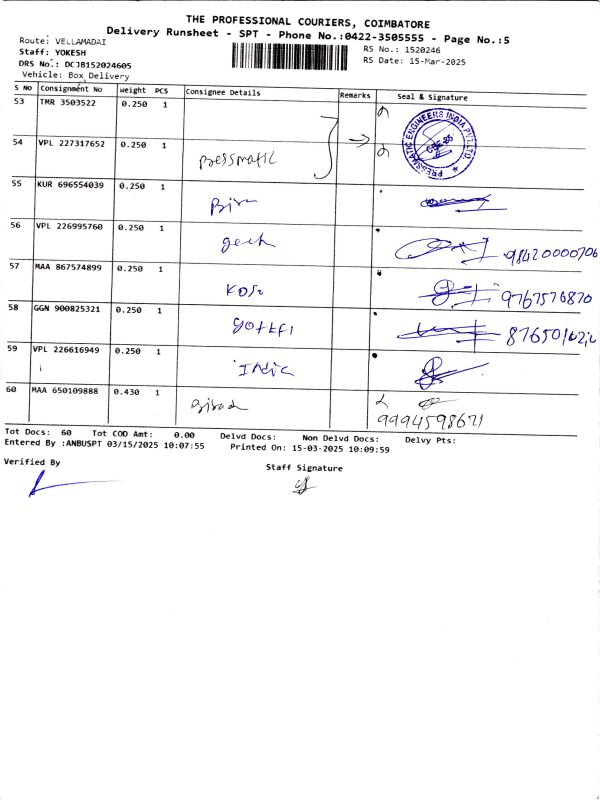 THE PROFESSIONAL COURIERS, COIMBATORE
Delivery Runsheet - SPT - Phone No.:0422-3505555 - Page No.:5
Route: VELLAMADAI
RS No.: 1520246
Staff: YOKESH
RS Date: 15-Mar-2025
DRS No.: DCJB152024605
Vehicle: Box Delivery
S No Consignment No Weight PCS Consignee Details Remarks Seal & Signature
53 TMR 3503522 0.250 1
PRESSMATIC ENGINEERS INDIA PVT LTD.
54 VPL 227317652 0.250 1 pressmatic
55 KUR 696554039 0.250 1
56 VPL 226995760 0.250 1 98420000706
57 MAA 867574899 0.250 1 9767576870
58 GGN 900825321 0.250 1
59 VPL 226616949 0.250 1 Indic
60 MAA 650109888 0.430 1
9994598671
Tot Docs: 60 Tot COD Amt: 0.00 Delvd Docs: Non Delvd Docs: Delvy Pts:
Entered By :ANBUSPT 03/15/2025 10:07:55 Printed On: 15-03-2025 10:09:59
Verified By
Staff Signature